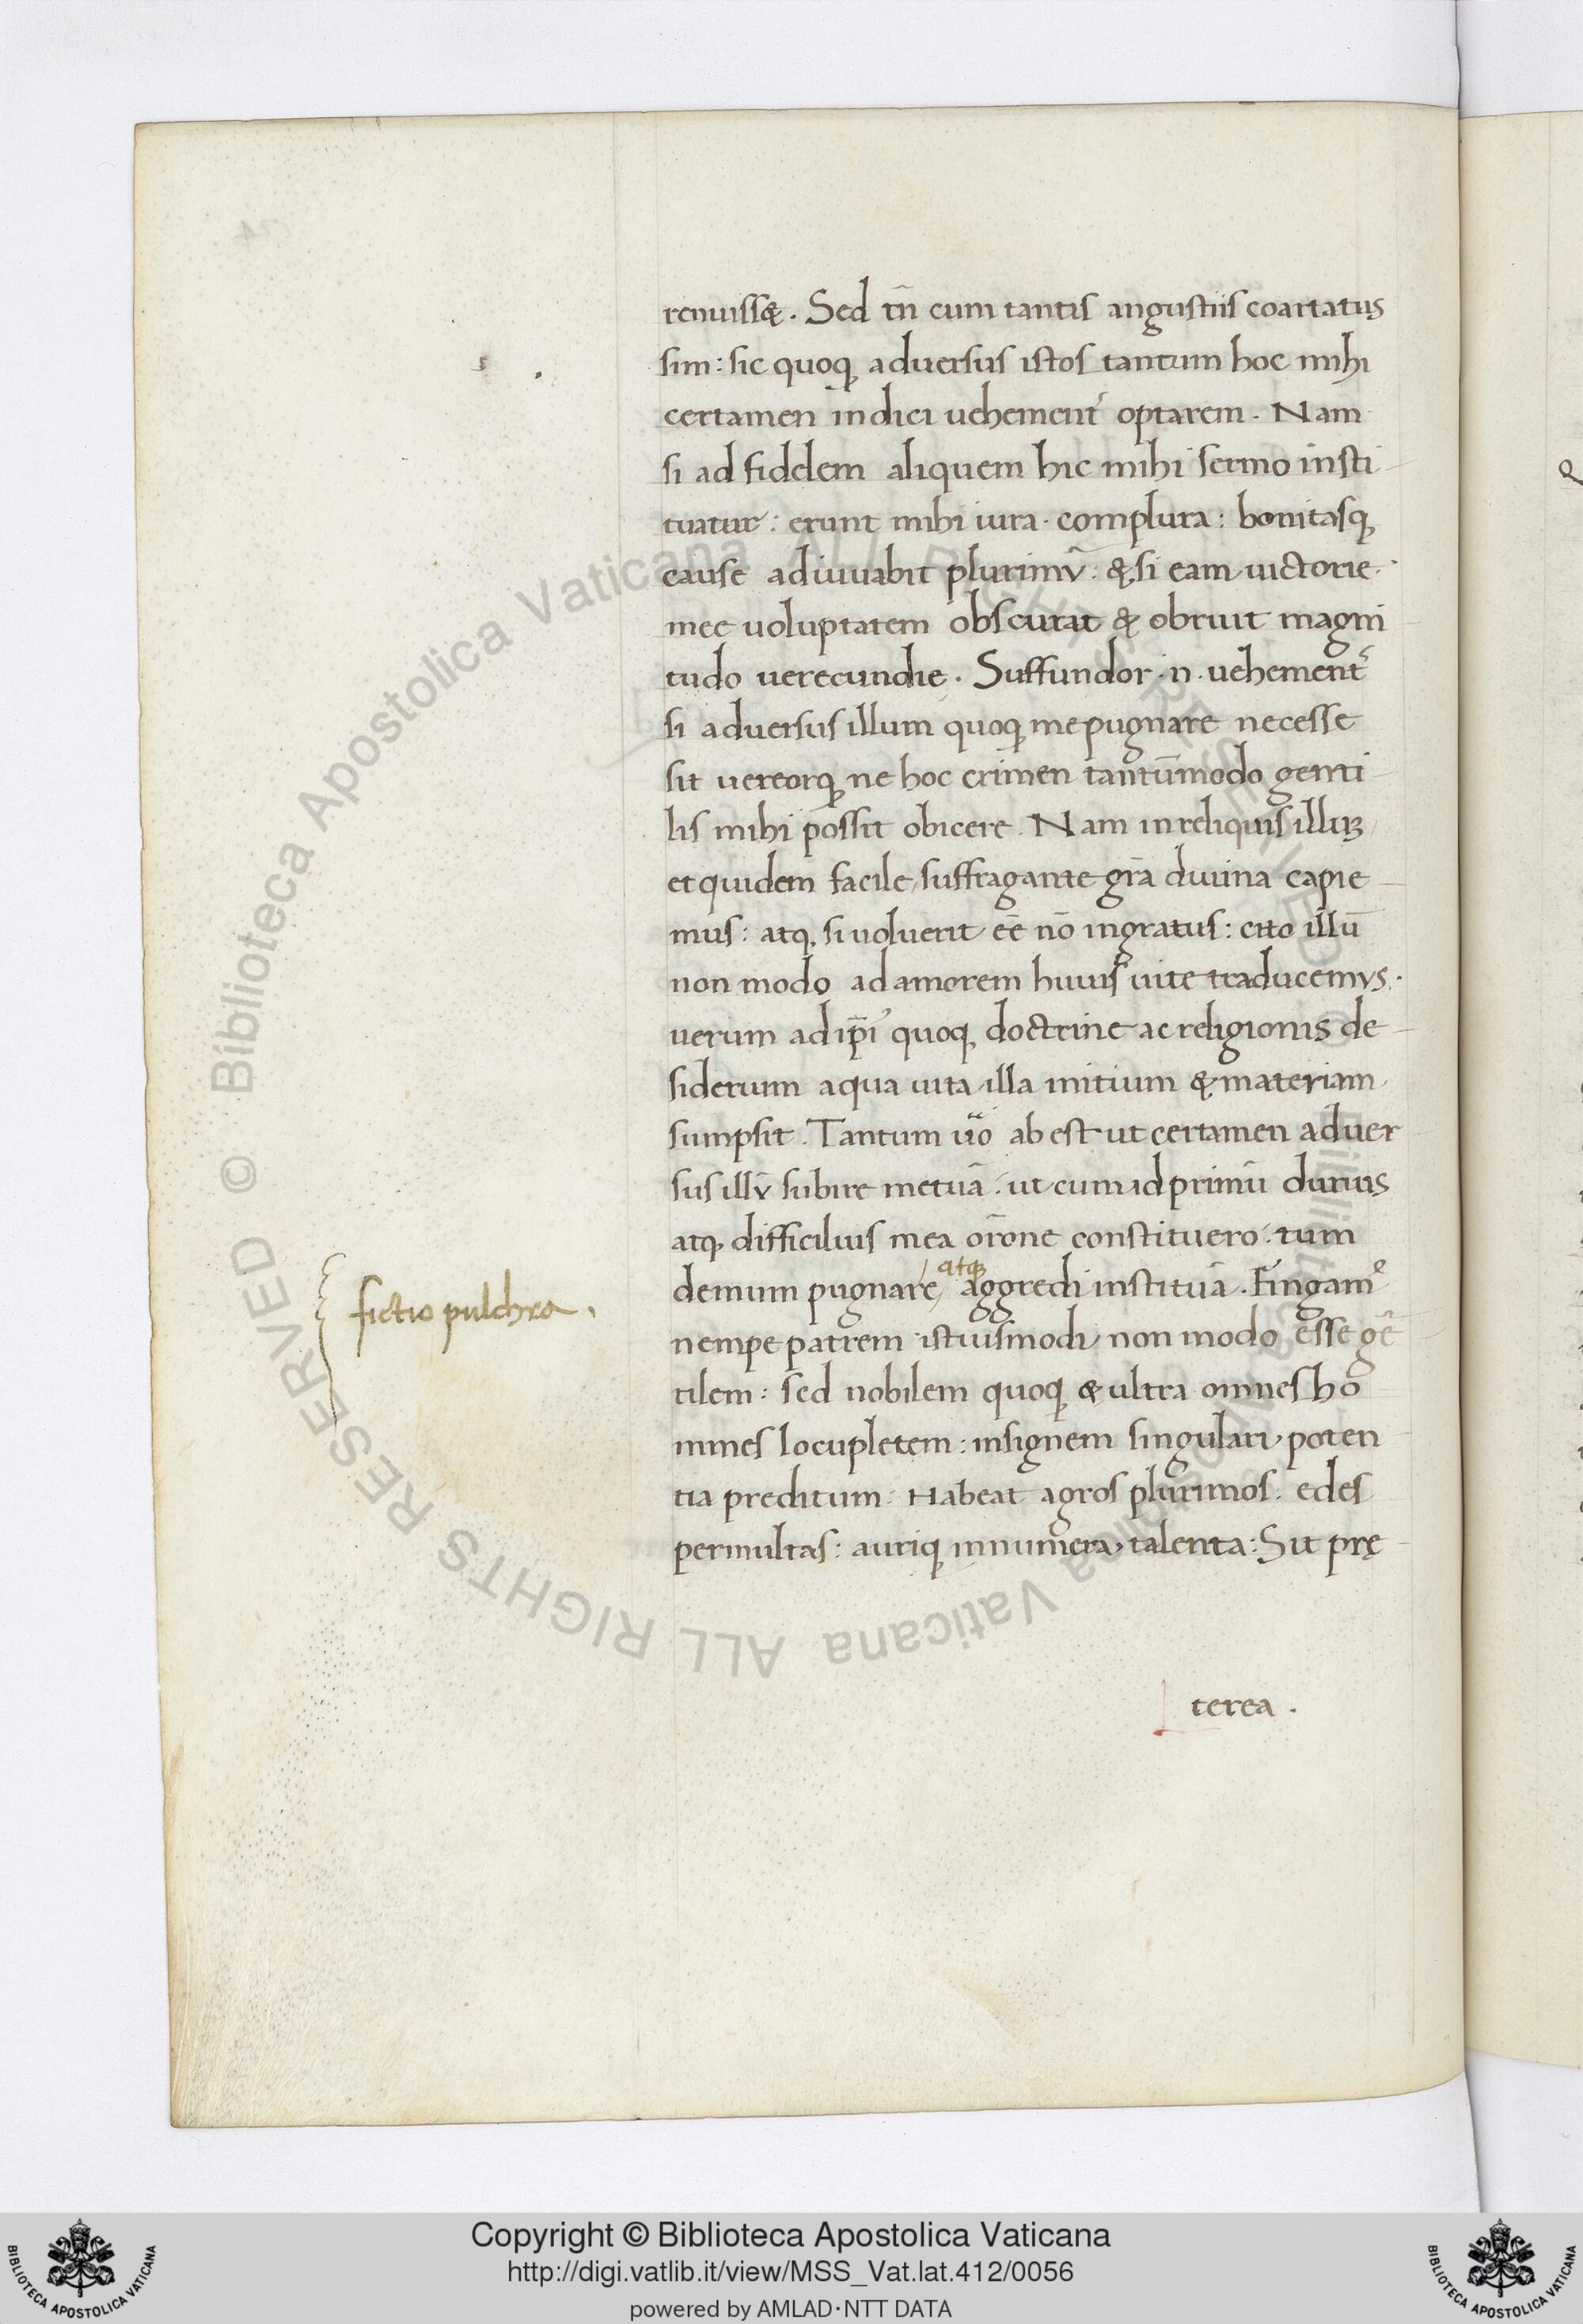 renuiss&. Sed tn̄ cum tantis angustiis coartatus
sim: sic quoq, adversus istos tantum hoc mihi
certamen indici uehement̄ optarem. Nam
si ad fidelem aliquem hic mihi sermo insti
tuatur: erunt mihi iura complura: bonitasq,
cause adiuuabit plurimū: & si eam uictorie
mee uoluptatem obscurat & obruit magni
tudo uerecundie. Suffundor .n. uehement̄
si aduersus illum quoq, me pugnare necesse
sit uereorq, ne hoc crimen tantūmodo genti
lis mihi possit obicere. Nam in reliquis illuꝫ
et quidem facile suffragante gr̄a diuina capie
mus: atq, si uoluerit eē nō ingratus: cito illū
non modo ad amorem huius uite traducemus.
uerum ad ip̄i' quoq, doctrine ac religionis de
siderium a qua uita illa initium & materiam
sumpsit. Tantum ūo abest ut certamen aduer
sus illū subire metuā: ut cum id primū durius
atq, difficilius mea or̄one constituero: tum
demum pugnare, atq, aggredi instituā. Fingam⁹
nempe patrem istiusmodi non modo esse gē
tilem: sed nobilem quoq, & ultra omnes ho
mines locupletem: insignem singulari poten
tia preditum. Habeat agros plurimos. edes
permultas: auriq, innumera talenta: Sit prę
terea.
fictio pulchra.
© Biblioteca Apostolica Vaticana ALL RIGHTS RESERVED
© Biblioteca Apostolica Vaticana ALL RIGHTS RESERVED
Copyright © Biblioteca Apostolica Vaticana
http://digi.vatlib.it/view/MSS_Vat.lat.412/0056
powered by AMLAD·NTT DATA
BIBLIOTECA APOSTOLICA VATICANA
BIBLIOTECA APOSTOLICA VATICANA